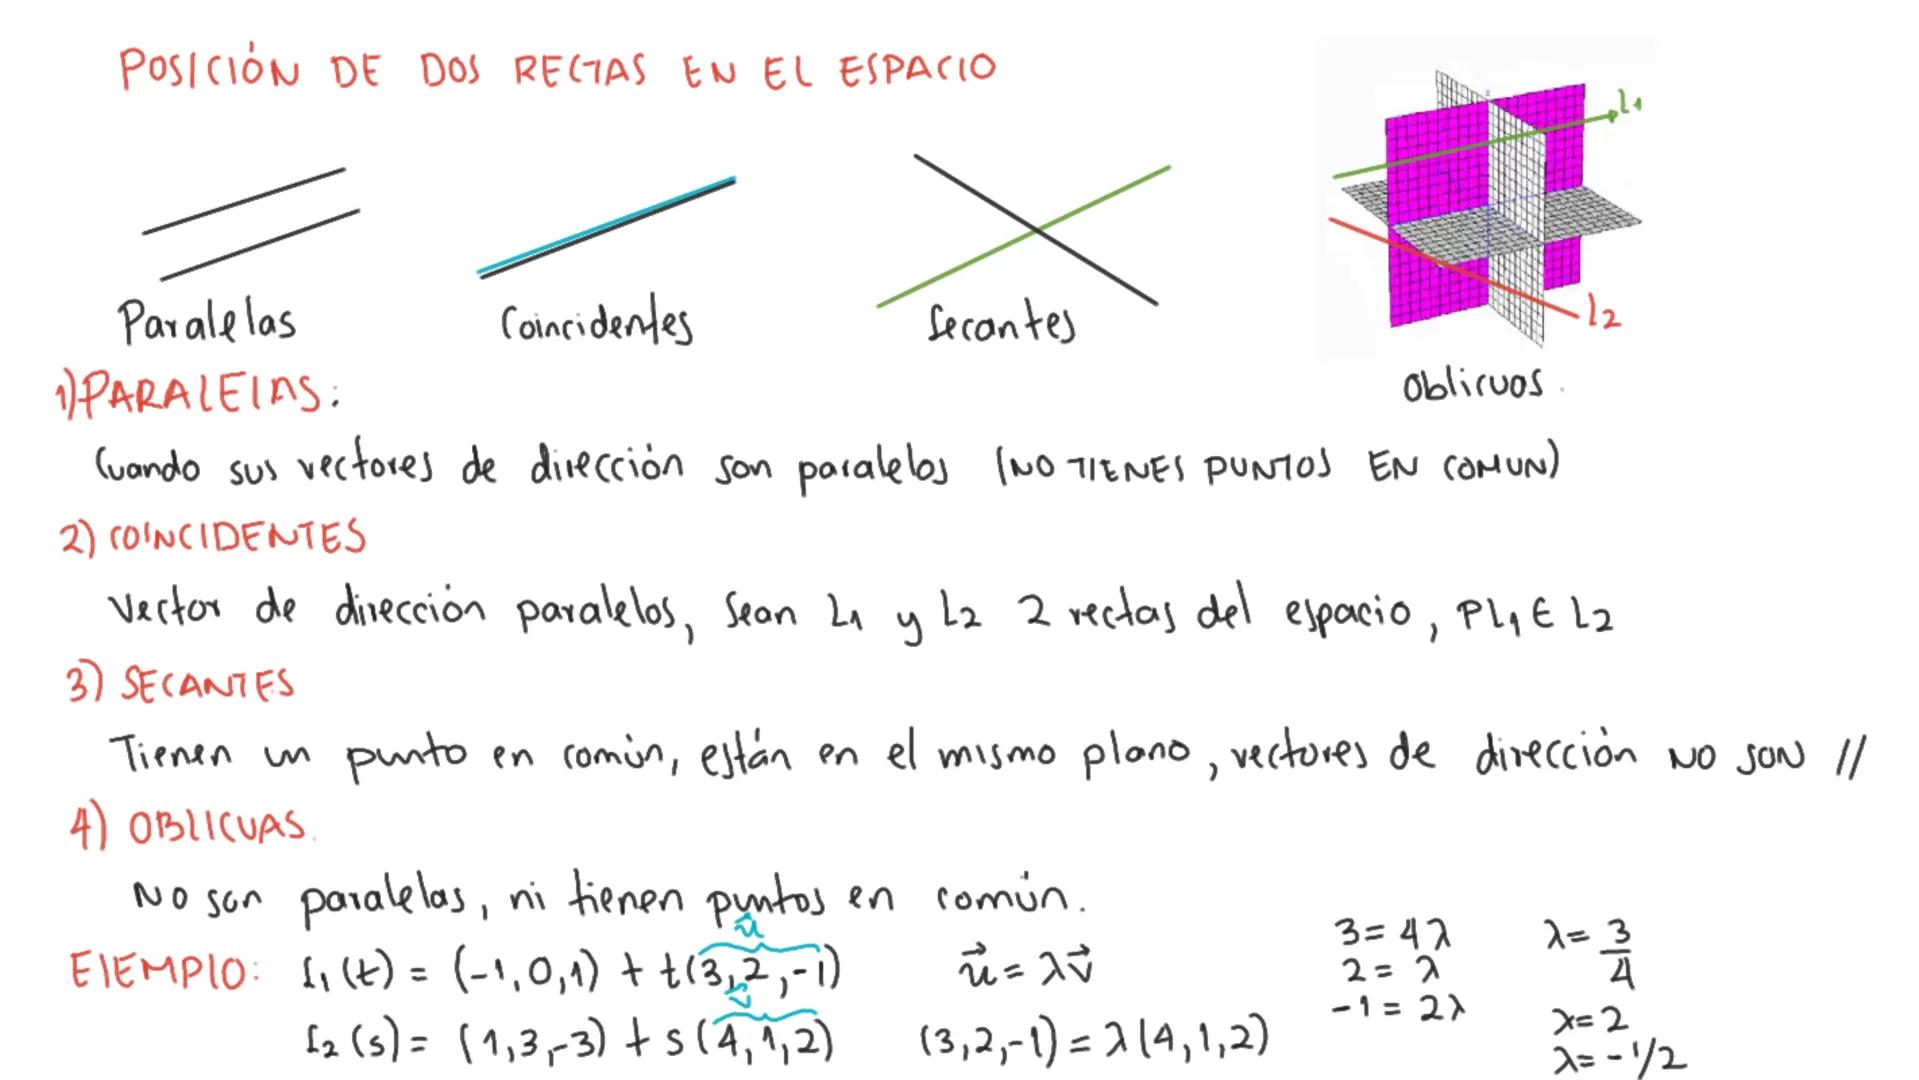 POSICIÓN DE DOS RECTAS EN EL ESPACIO
L1
L2
Paralelas
Coincidentes
Secantes
Oblicuas.
1) PARALELAS:
Cuando sus vectores de dirección son paralelos (NO TIENES PUNTOS EN COMUN)
2) COINCIDENTES
Vector de dirección paralelos, Sean L1 y L2 2 rectas del espacio, PL1 ∈ L2
3) SECANTES
Tienen un punto en común, están en el mismo plano, vectores de dirección NO SON //
4) OBLICUAS.
No son paralelas, ni tienen puntos en común.
u⃗
EJEMPLO: L1(t) = (-1,0,1) + t(3,2,-1)
v⃗
L2(s) = (1,3,-3) + s(4,1,2)
u⃗ = λv⃗
(3,2,-1) = λ(4,1,2)
3 = 4λ
2 = λ
-1 = 2λ
λ = 3/4
λ = 2
λ = -1/2